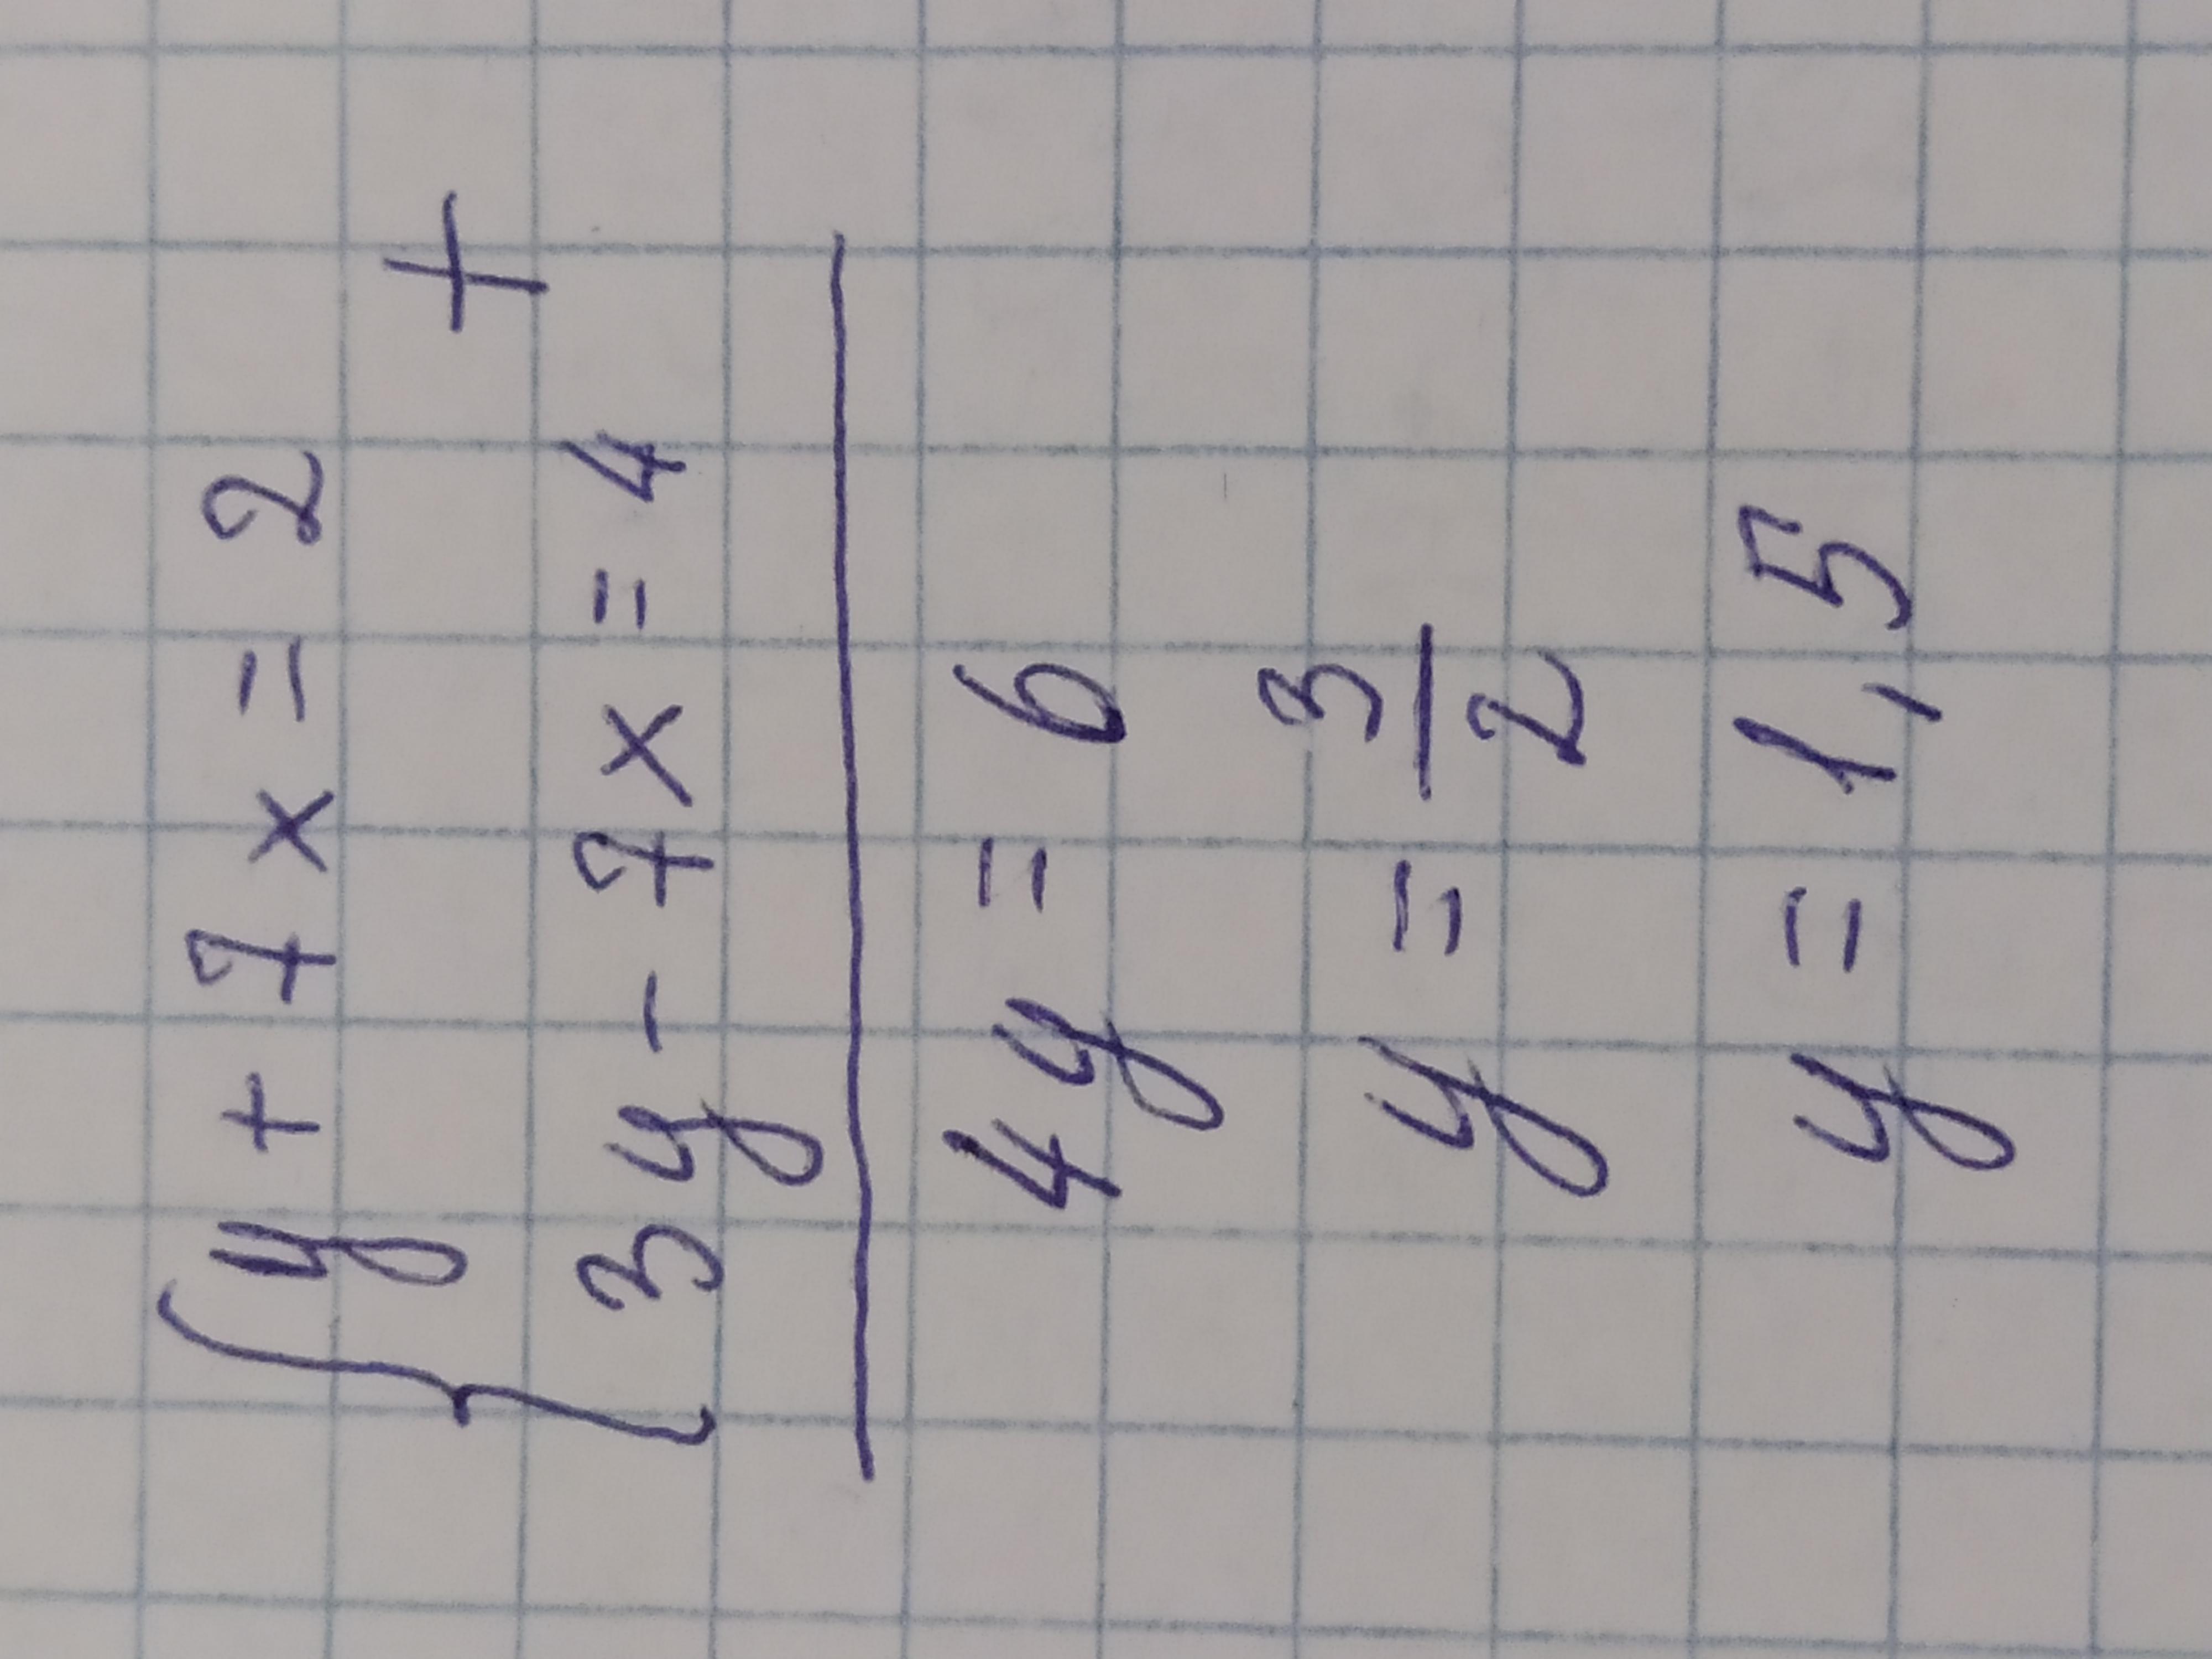 y + 7x = 2
+
3y - 7x = 4
4y = 6
y = 3/2
y = 1,5